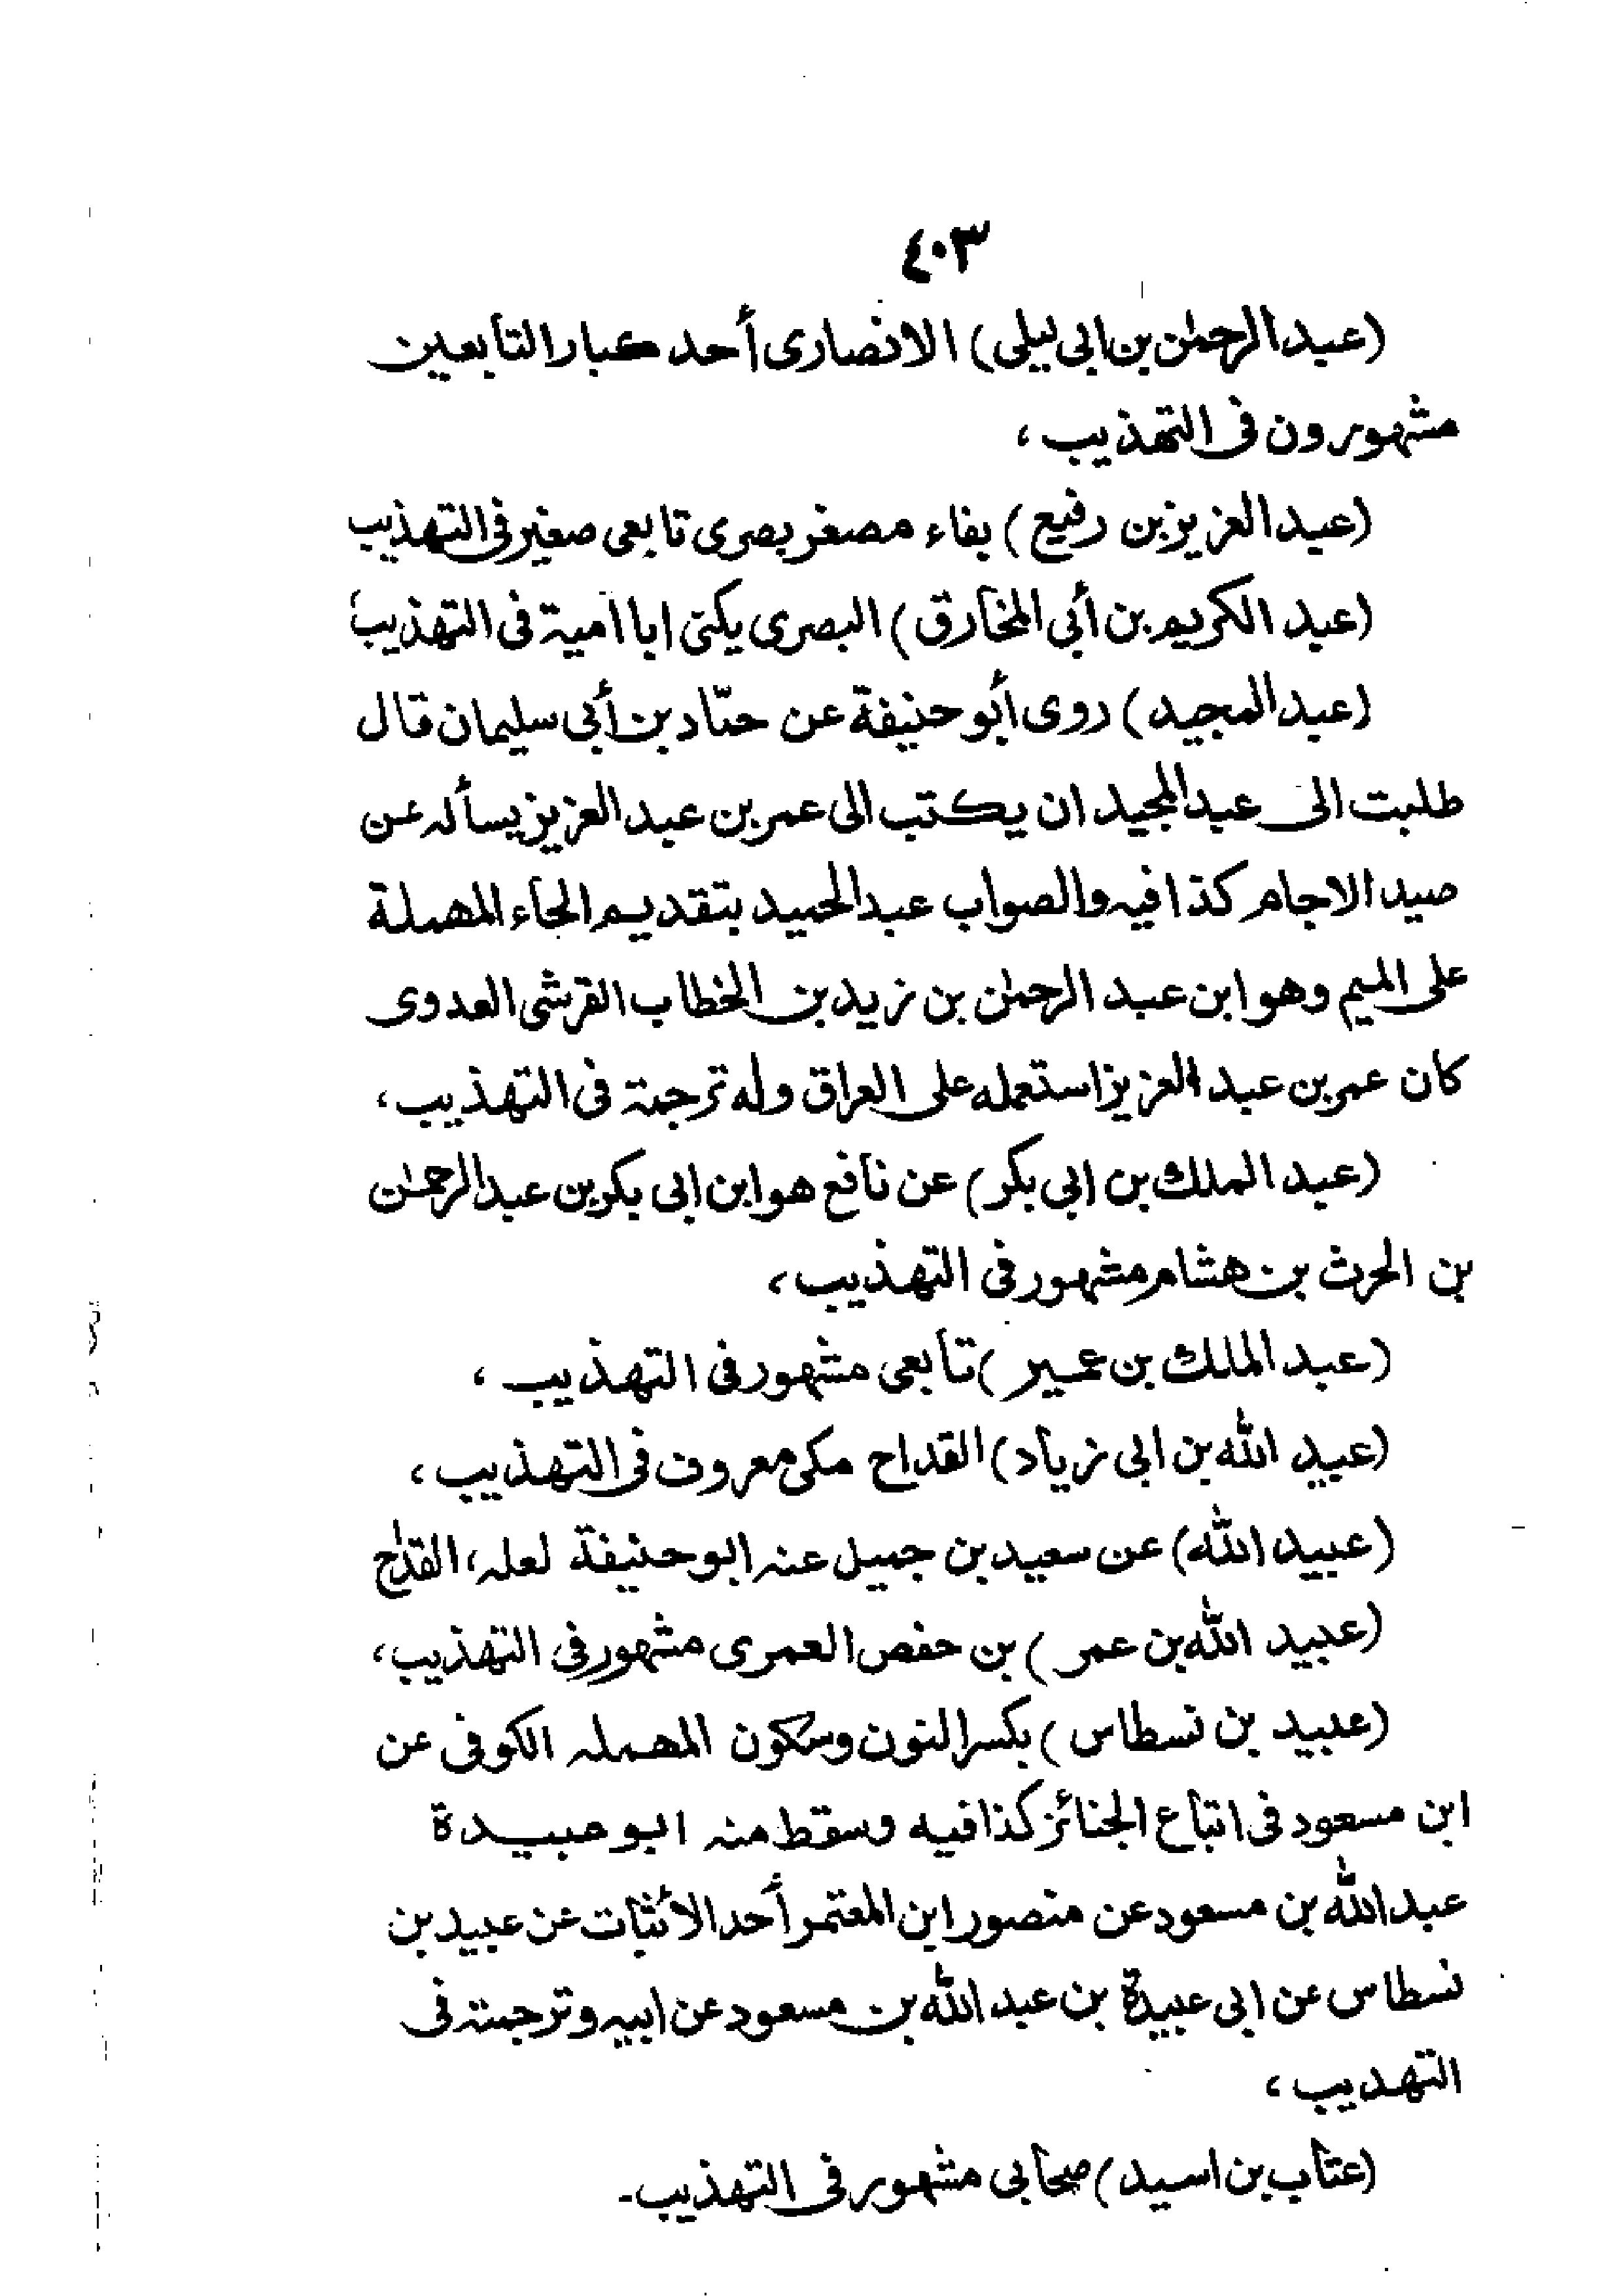 ٤٠٣
(عبد الرحمٰن بن ابى ليلى) الانصارى أحد كبار التابعين
مشهورون فى التهذيب،
(عبد العزيز بن رفيع) بفاء مصغر بصرى تابعى صغير فى التهذيب
(عبد الكريم بن أبى المخارق) البصرى يكنى ابا امية فى التهذيب
(عبد المجيد) روى أبو حنيفة عن حمّاد بن أبى سليمان قال
طلبت الى عبد المجيد ان يكتب الى عمر بن عبد العزيز يسأله عن
صيد الاجام كذا فيه والصواب عبد الحميد بتقديم الحاء المهملة
على الميم وهو ابن عبد الرحمٰن بن زيد بن الخطاب القرشى العدوى
كان عمر بن عبد العزيز استعمله على العراق وله ترجمة فى التهذيب،
(عبد الملك بن ابى بكر) عن نافع هو ابن ابى بكر بن عبد الرحمٰن
بن الحرث بن هشام مشهور فى التهذيب،
(عبد الملك بن عمير) تابعى مشهور فى التهذيب،
(عبيد الله بن ابى زياد) القداح مكى معروف فى التهذيب،
(عبيد الله) عن سعيد بن جبيل عنه ابو حنيفة لعله، القداح
(عبيد الله بن عمر) بن حفص العمرى مشهور فى التهذيب،
(عبيد بن نسطاس) بكسر النون وسكون المهمله الكوفى عن
ابن مسعود فى اتباع الجنائز كذا فيه وسقط منه ابو عبيدة
عبد الله بن مسعود عن منصور ابن المعتمر أحد الأثبات عن عبيد بن
نسطاس عن ابى عبيدة بن عبد الله بن مسعود عن ابيه وترجمته فى
التهديب،
(عتاب بن اسيد) صحابى مشهور فى التهذيب-